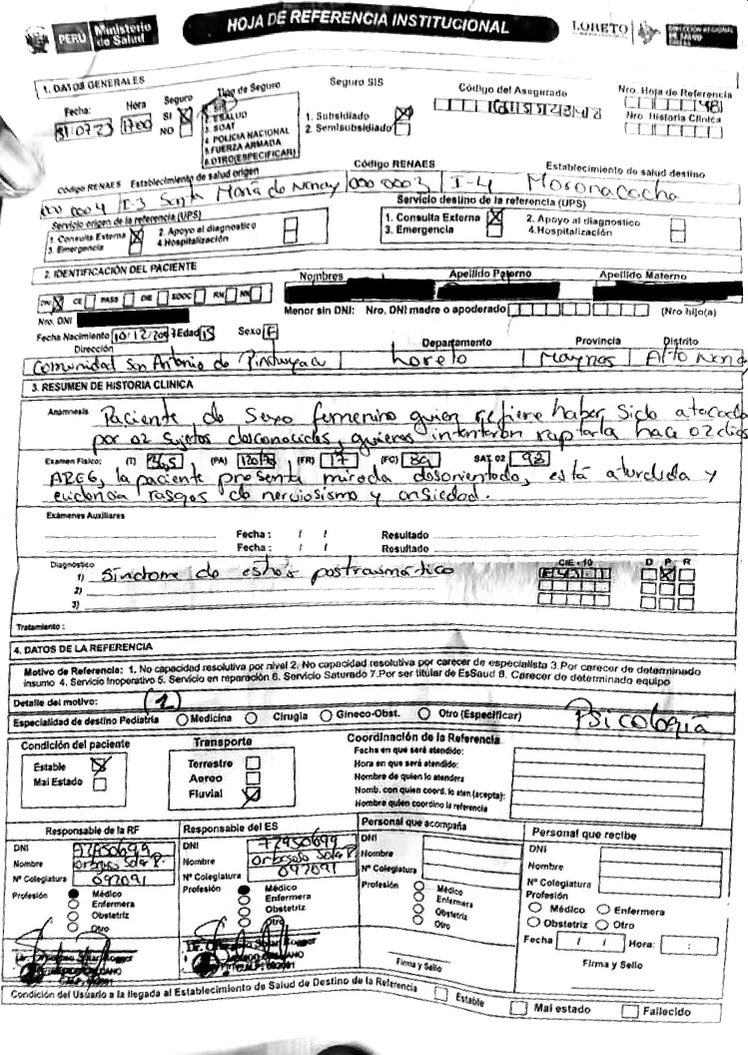 PERÚ Ministerio de Salud
HOJA DE REFERENCIA INSTITUCIONAL
LORETO
DIRECCION REGIONAL DE SALUD LORETO
1. DATOS GENERALES
Fecha: 31/07/23 Hora 17:00 Seguro SI NO
Tipo de Seguro
SIS
2. ESALUD
3. SOAT
4. POLICIA NACIONAL
5. FUERZA ARMADA
6. OTRO(ESPECIFICAR)
Seguro SIS
1. Subsidiado
2. Semisubsidiado
Código del Asegurado
Nro. Hoja de Referencia
481
Nro. Historia Clinica
Código RENAES Establecimiento de salud origen Código RENAES Establecimiento de salud destino
000 0004 I-3 Santa María de Nanay 000 0003 I-4 Moronacocha
Servicio origen de la referencia (UPS)
1. Consulta Externa 2. Apoyo al diagnostico
3. Emergencia 4. Hospitalización
Servicio destino de la referencia (UPS)
1. Consulta Externa 2. Apoyo al diagnostico
3. Emergencia 4. Hospitalización
2. IDENTIFICACIÓN DEL PACIENTE
Nombres Apellido Paterno Apellido Materno
DNI CE PASS DIE SDOC RN NN
Menor sin DNI: Nro. DNI madre o apoderado (Nro hijo(a)
Nro. DNI
Fecha Nacimiento 10/12/2007 Edad 15 Sexo F
Dirección Departamento Provincia Distrito
Comunidad San Antonio de Loreto Maynas Alto Nanay
3. RESUMEN DE HISTORIA CLINICA
Anamnesis Paciente de sexo femenino quien refiere haber sido atacada
por 02 sujetos desconocidos, quienes intentaron raptarla hace 02 dias
Examen Fisico: (T) 36,5 (PA) (FR) 17 (FC) 89 SAT. 02 98
AREG, la paciente presenta mirada desorientada, está aturdida y
evidencia rasgos de nerviosismo y ansiedad.
Exámenes Auxiliares
Fecha : / / Resultado
Fecha : / / Resultado
Diagnóstico CIE - 10 D P R
1) Síndrome de estrés postraumático
2)
3)
Tratamiento :
4. DATOS DE LA REFERENCIA
Motivo de Referencia: 1. No capacidad resolutiva por nivel 2. No capacidad resolutiva por carecer de especialista 3.Por carecer de determinado
insumo 4. Servicio Inoperativo 5. Servicio en reparación 6. Servicio Saturado 7.Por ser titular de EsSaud 8. Carecer de determinado equipo
Detalle del motivo: (2)
Especialidad de destino Pediatria Medicina Cirugia Gineco-Obst. Otro (Especificar) Psicología
Condición del paciente
Estable
Mal Estado
Transporte
Terrestre
Aereo
Fluvial
Coordinación de la Referencia
Fecha en que será atendido:
Hora en que será atendido:
Nombre de quien lo atendera
Nomb. con quien coord. lo aten.(acepta):
Nombre quien coordino la referencia
Responsable de la RF
DNI 72950699
Nombre
N° Colegiatura 092091
Profesión Médico
Enfermera
Obstetriz
Otro
Responsable del ES
DNI 72950699
Nombre
N° Colegiatura 092091
Profesión Médico
Enfermera
Obstetriz
Otro
Personal que acompaña
DNI
Nombre
N° Colegiatura
Profesión Médico
Enfermera
Obstetriz
Otro
Firma y Sello
Personal que recibe
DNI
Nombre
N° Colegiatura
Profesión
Médico Enfermera
Obstetriz Otro
Fecha / / Hora: :
Firma y Sello
Condición del Usuario a la llegada al Establecimiento de Salud de Destino de la Referencia Estable Mal estado Fallecido